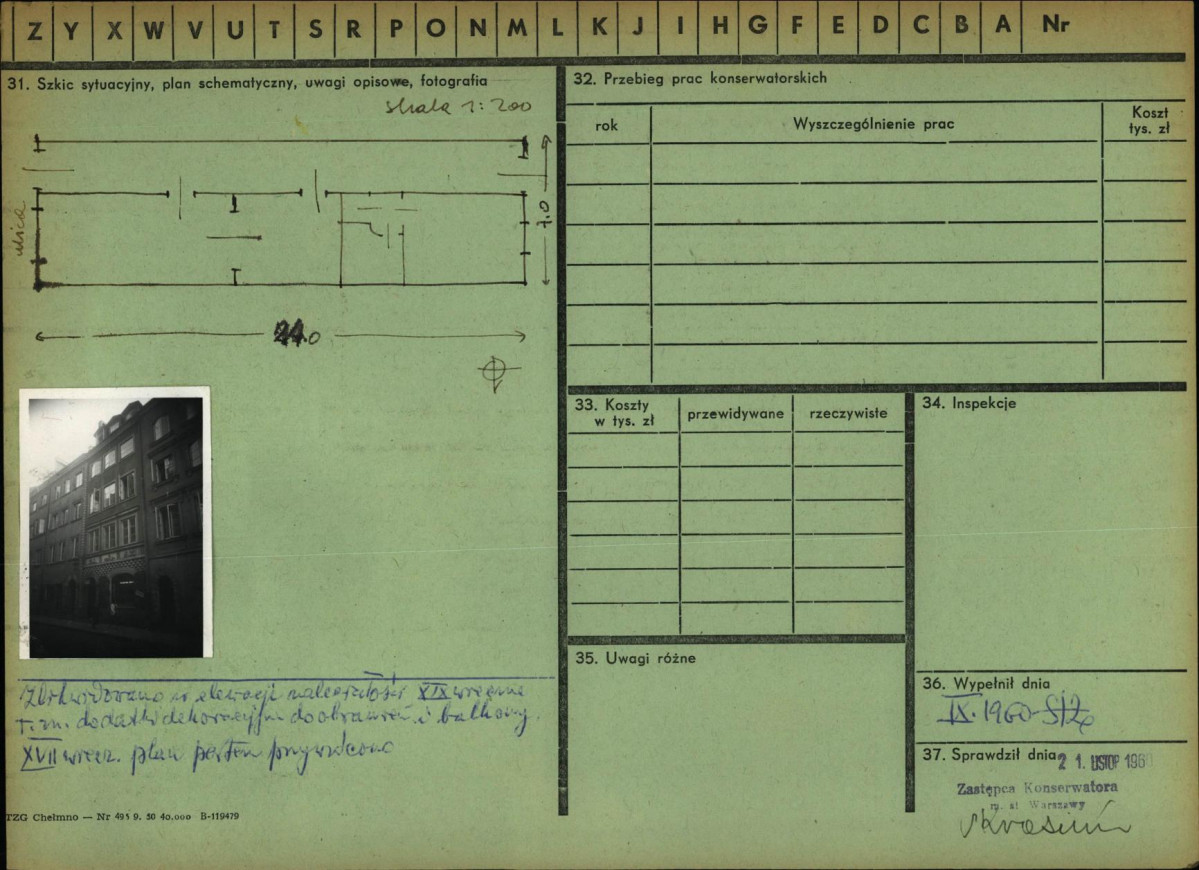 Z Y X W V U T S R P O N M L K J I H G F E D C B A Nr
31. Szkic sytuacyjny, plan schematyczny, uwagi opisowe, fotografia
skala 1:200
ulica
7.0
24.0
Zlikwidowano w elewacji naleciałości XIX wieczne
t.zn. dodatki dekoracyjne do obramień i balkony.
XVII wiecz. plan parteru przywrócono
TZG Chełmno — Nr 495 9. 50 40.000 B-119479
32. Przebieg prac konserwatorskich
rok
Wyszczególnienie prac
Koszt
tys. zł
33. Koszty
w tys. zł
przewidywane
rzeczywiste
34. Inspekcje
35. Uwagi różne
36. Wypełnił dnia
IX. 1960
37. Sprawdził dnia 21. LISTOP 1960
Zastępca Konserwatora
m. st. Warszawy